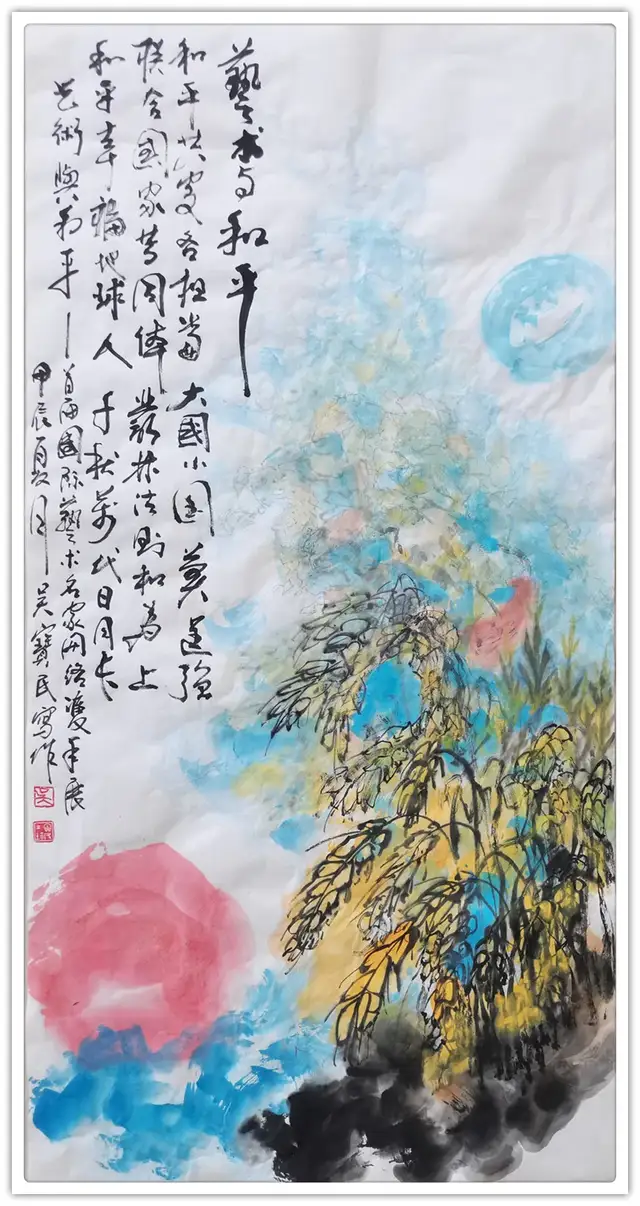 藝术与和平
和平共处各担當 大國小国莫逞强
联合國家共同体 叢林法则和为上
和平幸福地球人 千秋萬代日月长
艺術與和平—首届國际藝术名家网络双年展
甲辰夏月 吴寳民寫作
吴